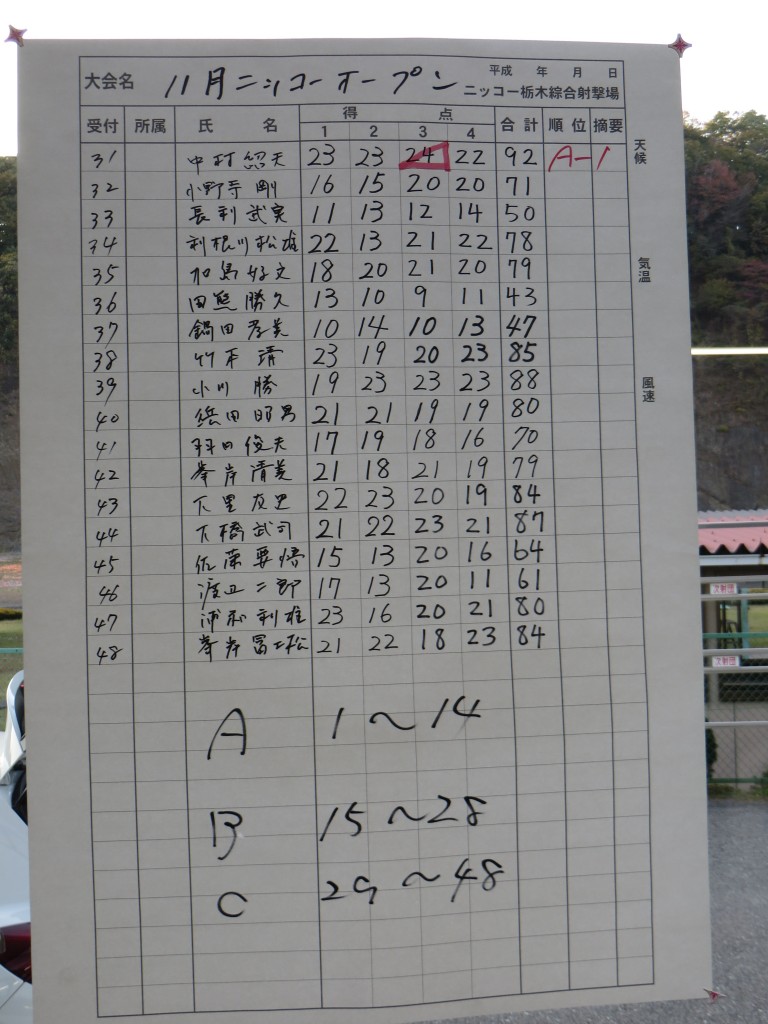 大会名 11月ニッコーオープン 平成 年 月 日
ニッコー栃木綜合射撃場
受付 所属 氏 名 得 点 合計 順位 摘要
1 2 3 4
31 中村紹夫 23 23 24 22 92 A-1
32 小野寺剛 16 15 20 20 71
33 長利武実 11 13 12 14 50
34 利根川松雄 22 13 21 22 78
35 加島好文 18 20 21 20 79
36 田熊勝久 13 10 9 11 43
37 鍋田孝美 10 14 10 13 47
38 竹本靖 23 19 20 23 85
39 小川勝 19 23 23 23 88
40 浜田昭男 21 21 19 19 80
41 羽田俊夫 17 19 18 16 70
42 峯岸清美 21 18 21 19 79
43 下里友巳 22 23 20 19 84
44 下橋武司 21 22 23 21 87
45 佐藤要悟 15 13 20 16 64
46 渡辺二郎 17 13 20 11 61
47 浦和利雄 23 16 20 21 80
48 峯岸冨士松 21 22 18 23 84
A 1～14
B 15～28
C 29～48
天候
気温
風速